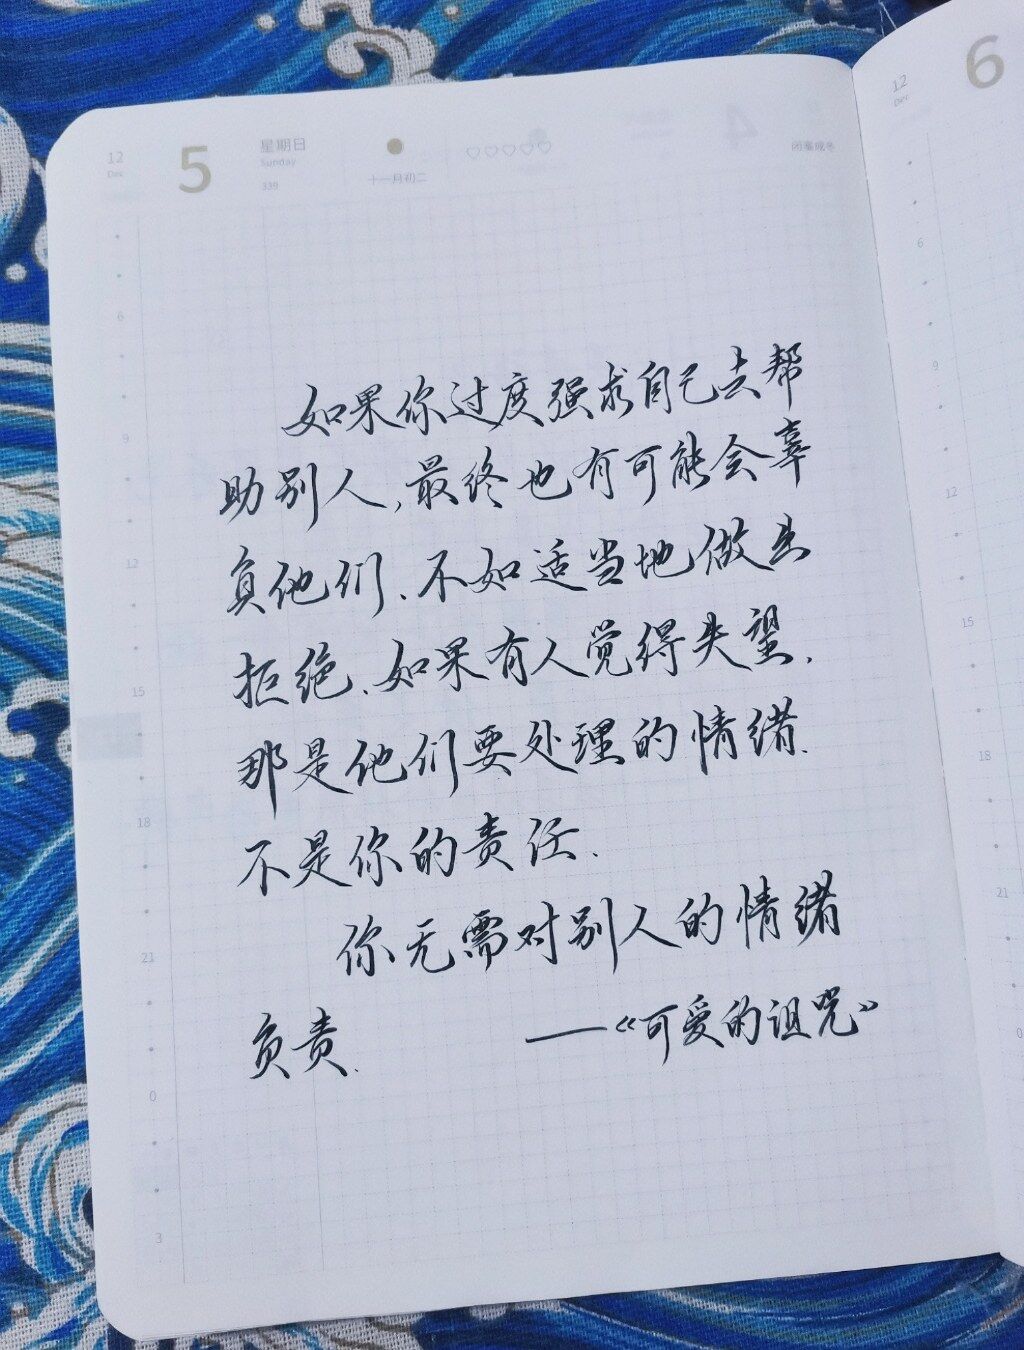 12
Dec
5
星期日
Sunday
339
十一月初二
闭塞成冬
12
Dec
6
如果你过度强求自己去帮
助别人,最终也有可能会辜
负他们、不如适当地做出
拒绝、如果有人觉得失望,
那是他们要处理的情绪.
不是你的责任.
你无需对别人的情绪
负责.
——《可爱的诅咒》
6
9
12
15
18
21
0
3
6
9
12
15
18
21
0